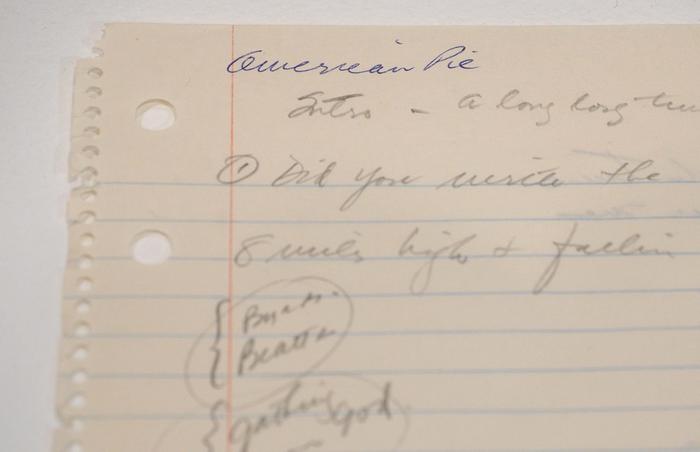 American Pie
Intro - a long long
① Did you write the
8 miles high + fallin
Byrds
Beatles
God